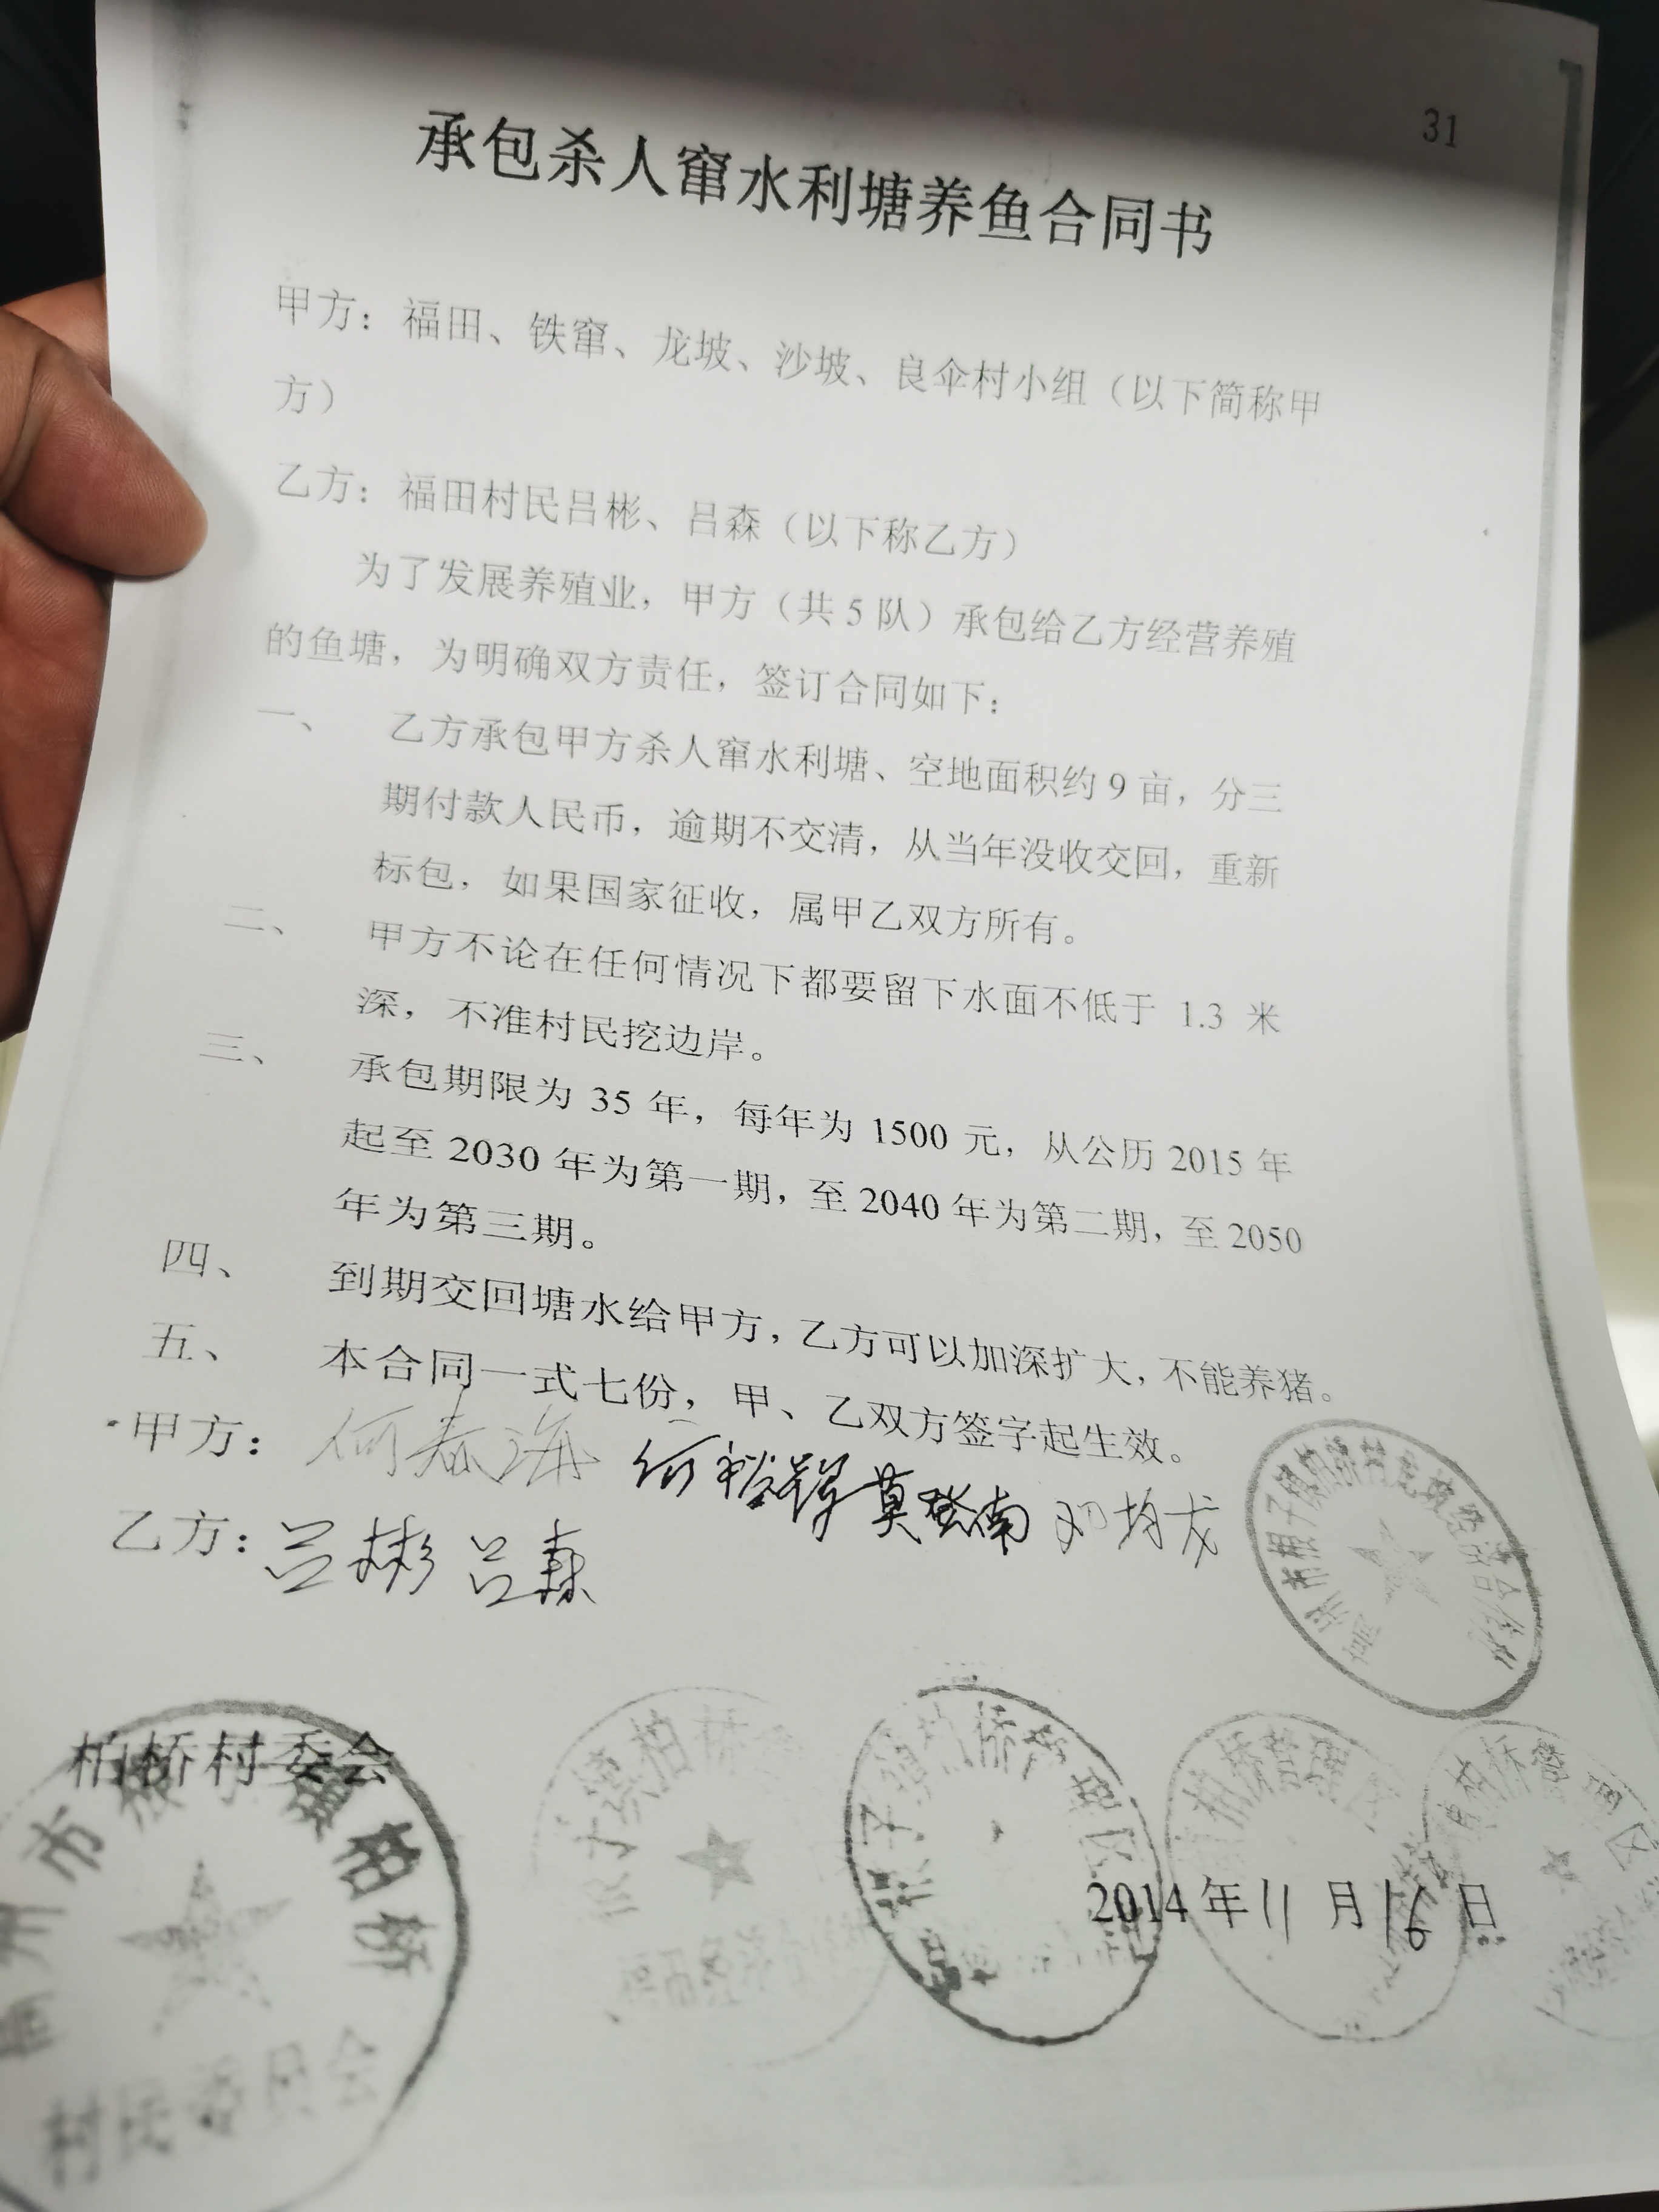 31
承包杀人窜水利塘养鱼合同书
甲方：福田、铁窜、龙坡、沙坡、良伞村小组（以下简称甲
方）
乙方：福田村民吕彬、吕森（以下称乙方）
为了发展养殖业，甲方（共5队）承包给乙方经营养殖
的鱼塘，为明确双方责任，签订合同如下：
一、 乙方承包甲方杀人窜水利塘、空地面积约9亩，分三
期付款人民币，逾期不交清，从当年没收交回，重新
标包，如果国家征收，属甲乙双方所有。
二、 甲方不论在任何情况下都要留下水面不低于 1.3 米
深，不准村民挖边岸。
三、 承包期限为 35 年，每年为 1500 元，从公历 2015 年
起至 2030 年为第一期，至 2040 年为第二期，至 2050
年为第三期。
四、 到期交回塘水给甲方，乙方可以加深扩大，不能养猪。
五、 本合同一式七份，甲、乙双方签字起生效。
甲方：何春海 何裕 莫 南 邓均龙
乙方：吕彬 吕森
市根子镇柏桥村龙坡经济合作社
柏桥村委会
州市根 镇柏桥
村民委员会
子镇柏桥
根子镇柏桥管理区
柏桥管理区
镇柏桥管理区
2014年11月16日